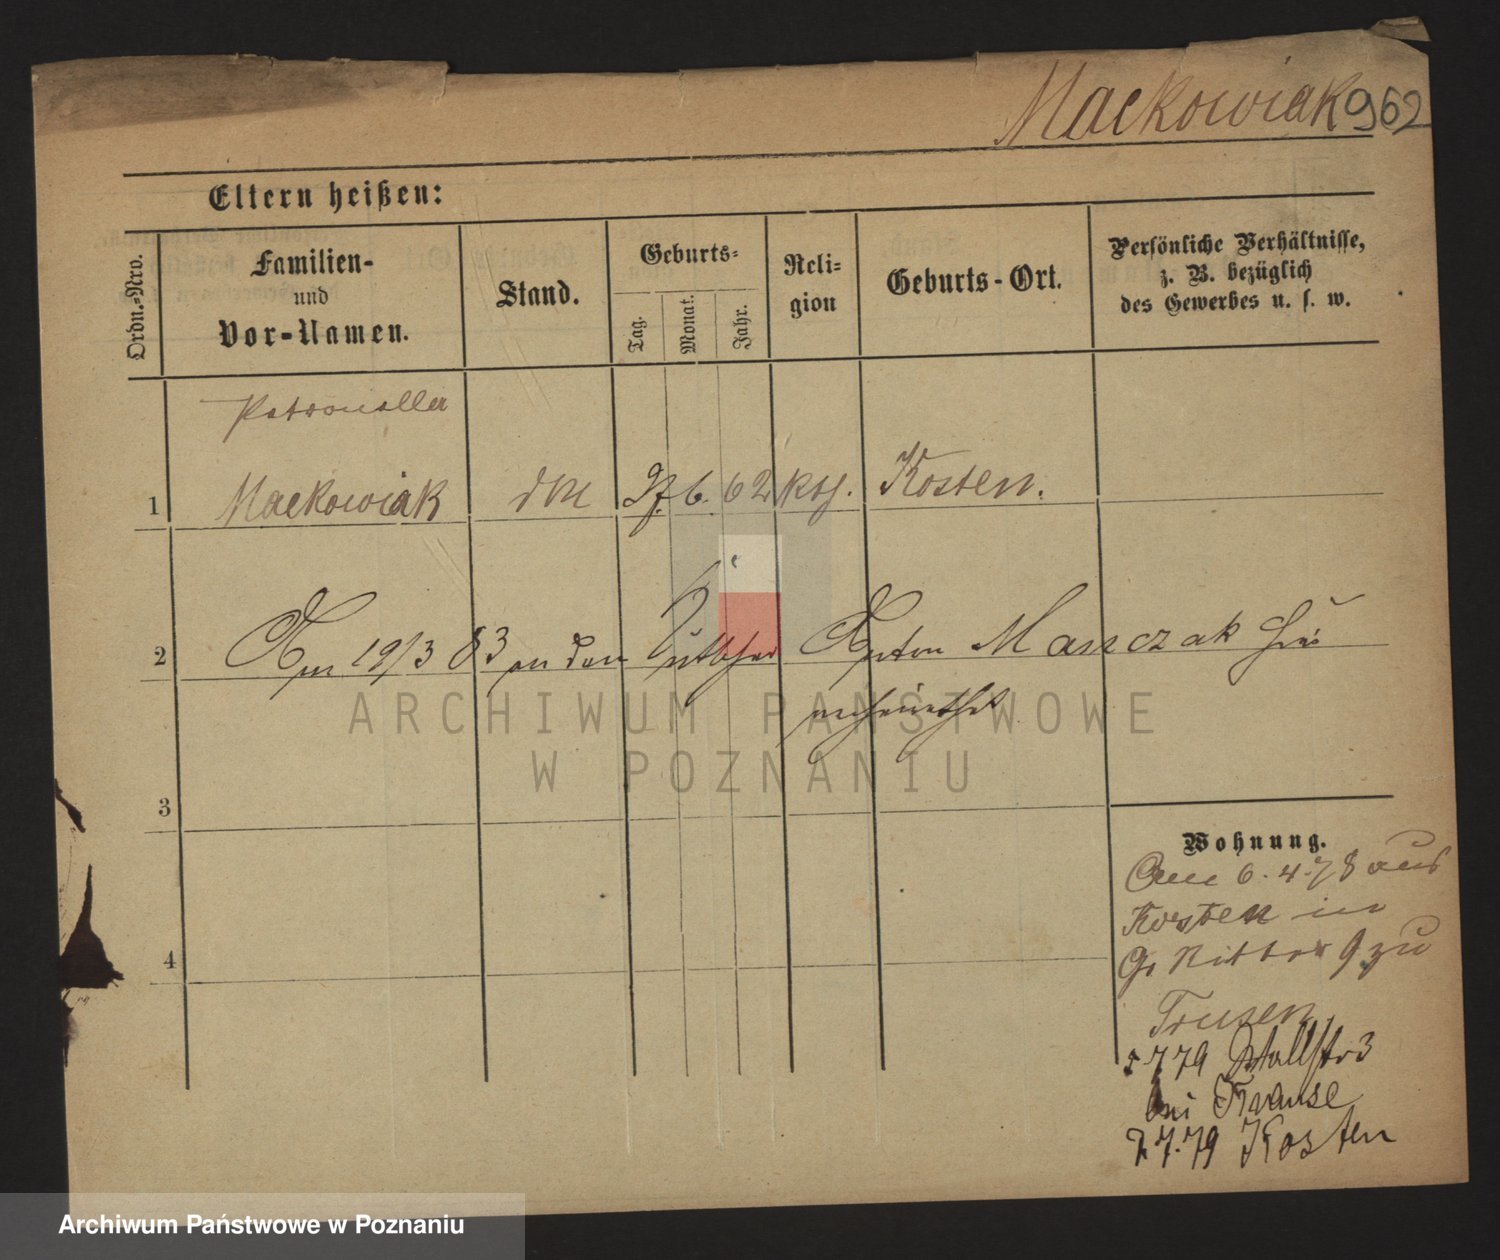 Mackowiak 962
Eltern heißen:
Ordn.-Nro.
Familien-
und
Vor-Namen.
Stand.
Geburts-
Tag.
Monat.
Jahr.
Reli-
gion
Geburts-Ort.
Persönliche Verhältnisse,
z. B. bezüglich
des Gewerbes u. s. w.
Petronella
1 Mackowiak 6. 62 kth. Kosten.
2 Am 19/3 83 an den Anton Manczak hier
verheirathet
3
4
Wohnung.
Am 6.4.78 aus
Kosten in
Gr Ritter 9 zu
Trusen
7 79 Wallstr 3
bei Krause
2.7.79 Kosten
ARCHIWUM PAŃSTWOWE
W POZNANIU
Archiwum Państwowe w Poznaniu